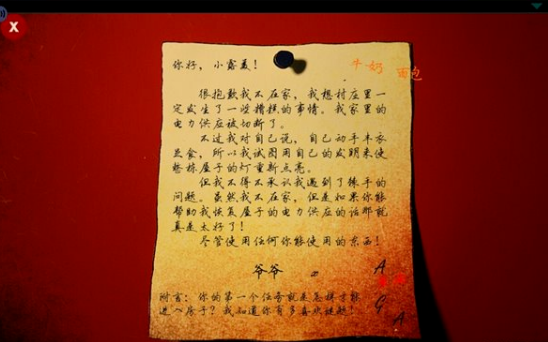 你好，小露美！
牛奶 面包
很抱歉我不在家，我想村庄里一
定发生了一些糟糕的事情。我家里的
电力供应被切断了。
不过我对自己说，自己动手丰衣
足食，所以我试图用自己的发明来使
整栋屋子的灯重新点亮。
但我不得不承认我遇到了棘手的
问题。虽然我不在家，但是如果你能
帮助我恢复屋子的电力供应的话那就
真是太好了！
尽管使用任何你能使用的东西！
爷爷
A
G
A
附言：你的第一个任务就是怎样才能
进入房子？我知道你有多喜欢谜题！
X